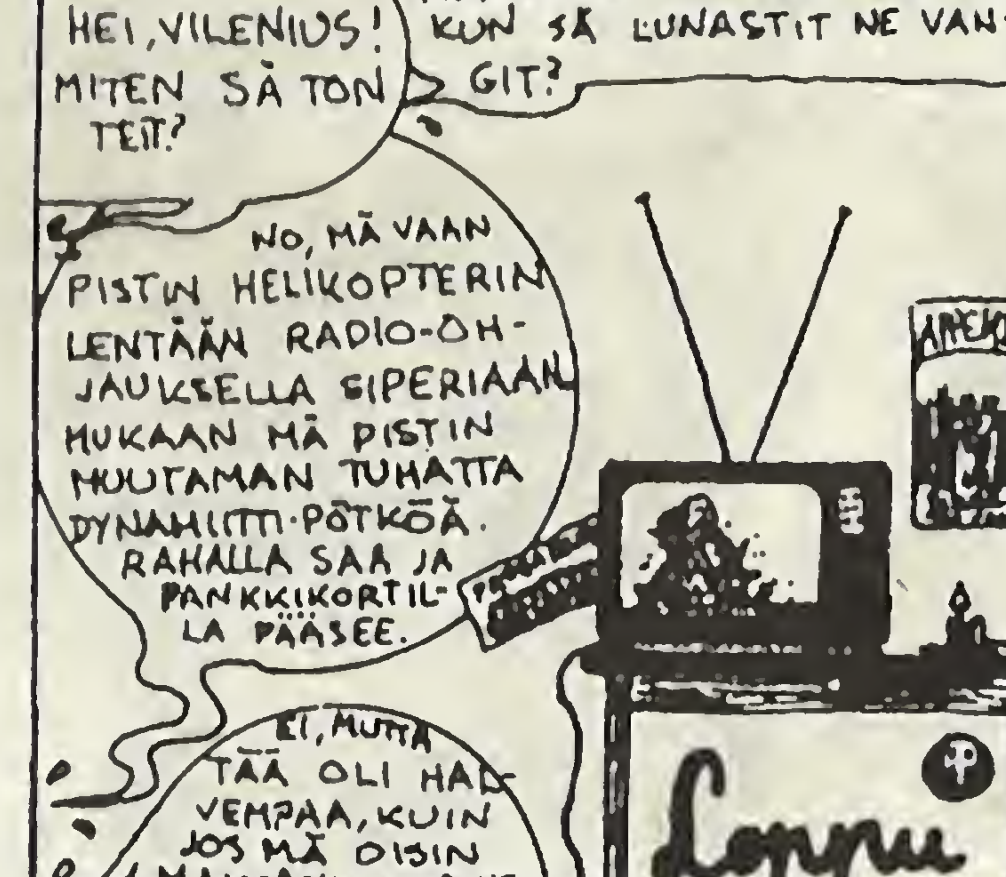 HEI, VILENIUS!
MITEN SÄ TON
TEIT?
KUN SÄ LUNASTIT NE VAN
GIT?
NO, MÄ VAAN
PISTIN HELIKOPTERIN
LENTÄÄN RADIO-OH-
JAUKSELLA SIPERIAAN
MUKAAN MÄ PISTIN
MUUTAMAN TUHATTA
DYNAMIITTI-PÖTKÖÄ.
RAHALLA SAA JA
PANKKIKORTIL-
LA PÄÄSEE.
EI, MUTTA
TÄÄ OLI HAL-
VEMPAA, KUIN
JOS MÄ OISIN
Loppu
P